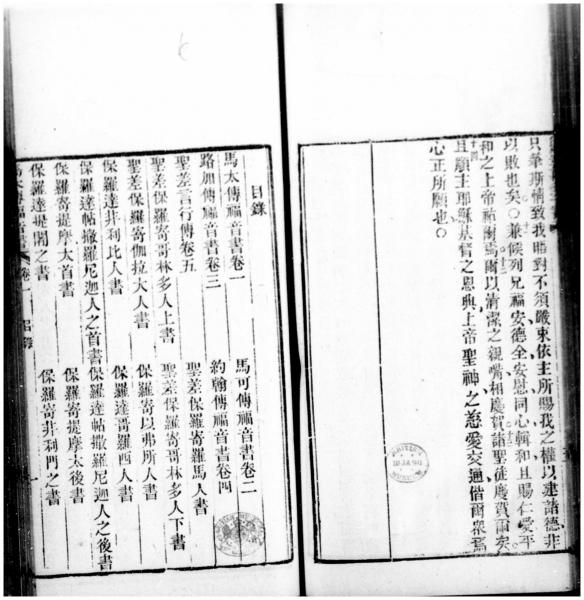 只筆斯情致我臨對不須嚴束依主所賜我之權以建諸德非
以敗也矣○兼候列兄福安德全安慰同心輯和且賜仁愛平
和之上帝祐爾焉爾以清潔之親嘴相慶賀諸聖徒慶賀爾矣
十四且願主耶穌基督之恩與上帝聖神之慈愛交通偕爾衆焉
心正所願也○
目錄
馬太傳福音書卷一 馬可傳福音書卷二
路加傳福音書卷三 約翰傳福音書卷四
聖差言行傳卷五 聖差保羅寄羅馬人書
聖差保羅寄哥林多人上書 聖差保羅寄哥林多人下書
聖差保羅寄伽拉大人書 保羅寄以弗所人書
保羅達非利比人書 保羅達哥羅西人書
保羅達帖撒羅尼迦人之首書 保羅達帖撒羅尼迦人之後書
保羅寄提摩太首書 保羅寄提摩太後書
保羅達提閣之書 保羅寄非利門之書